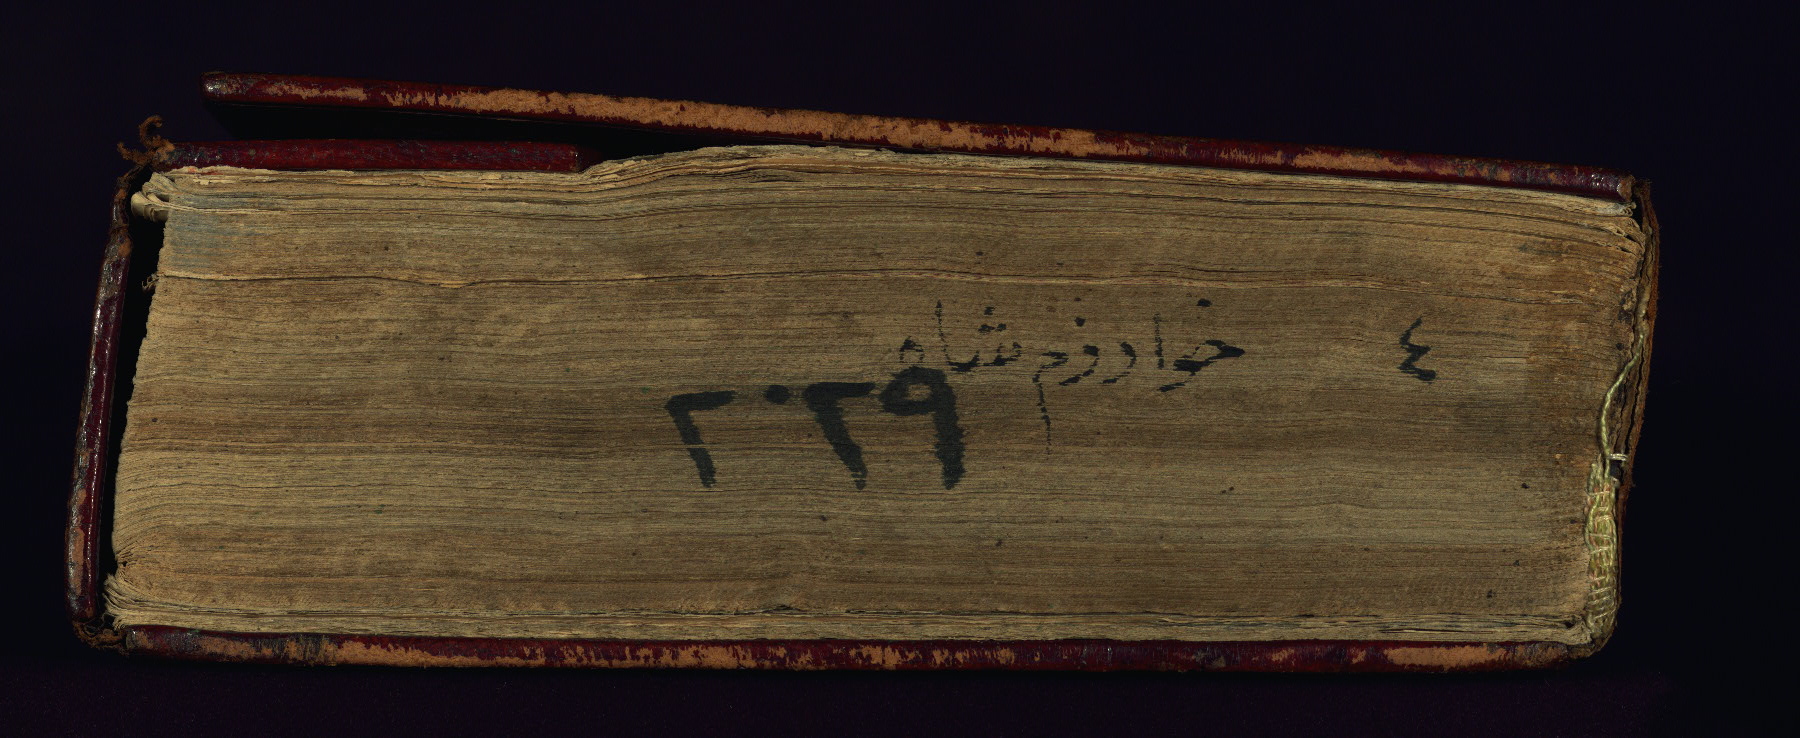 ٤ خوارزم شاه
٢٠٢٩